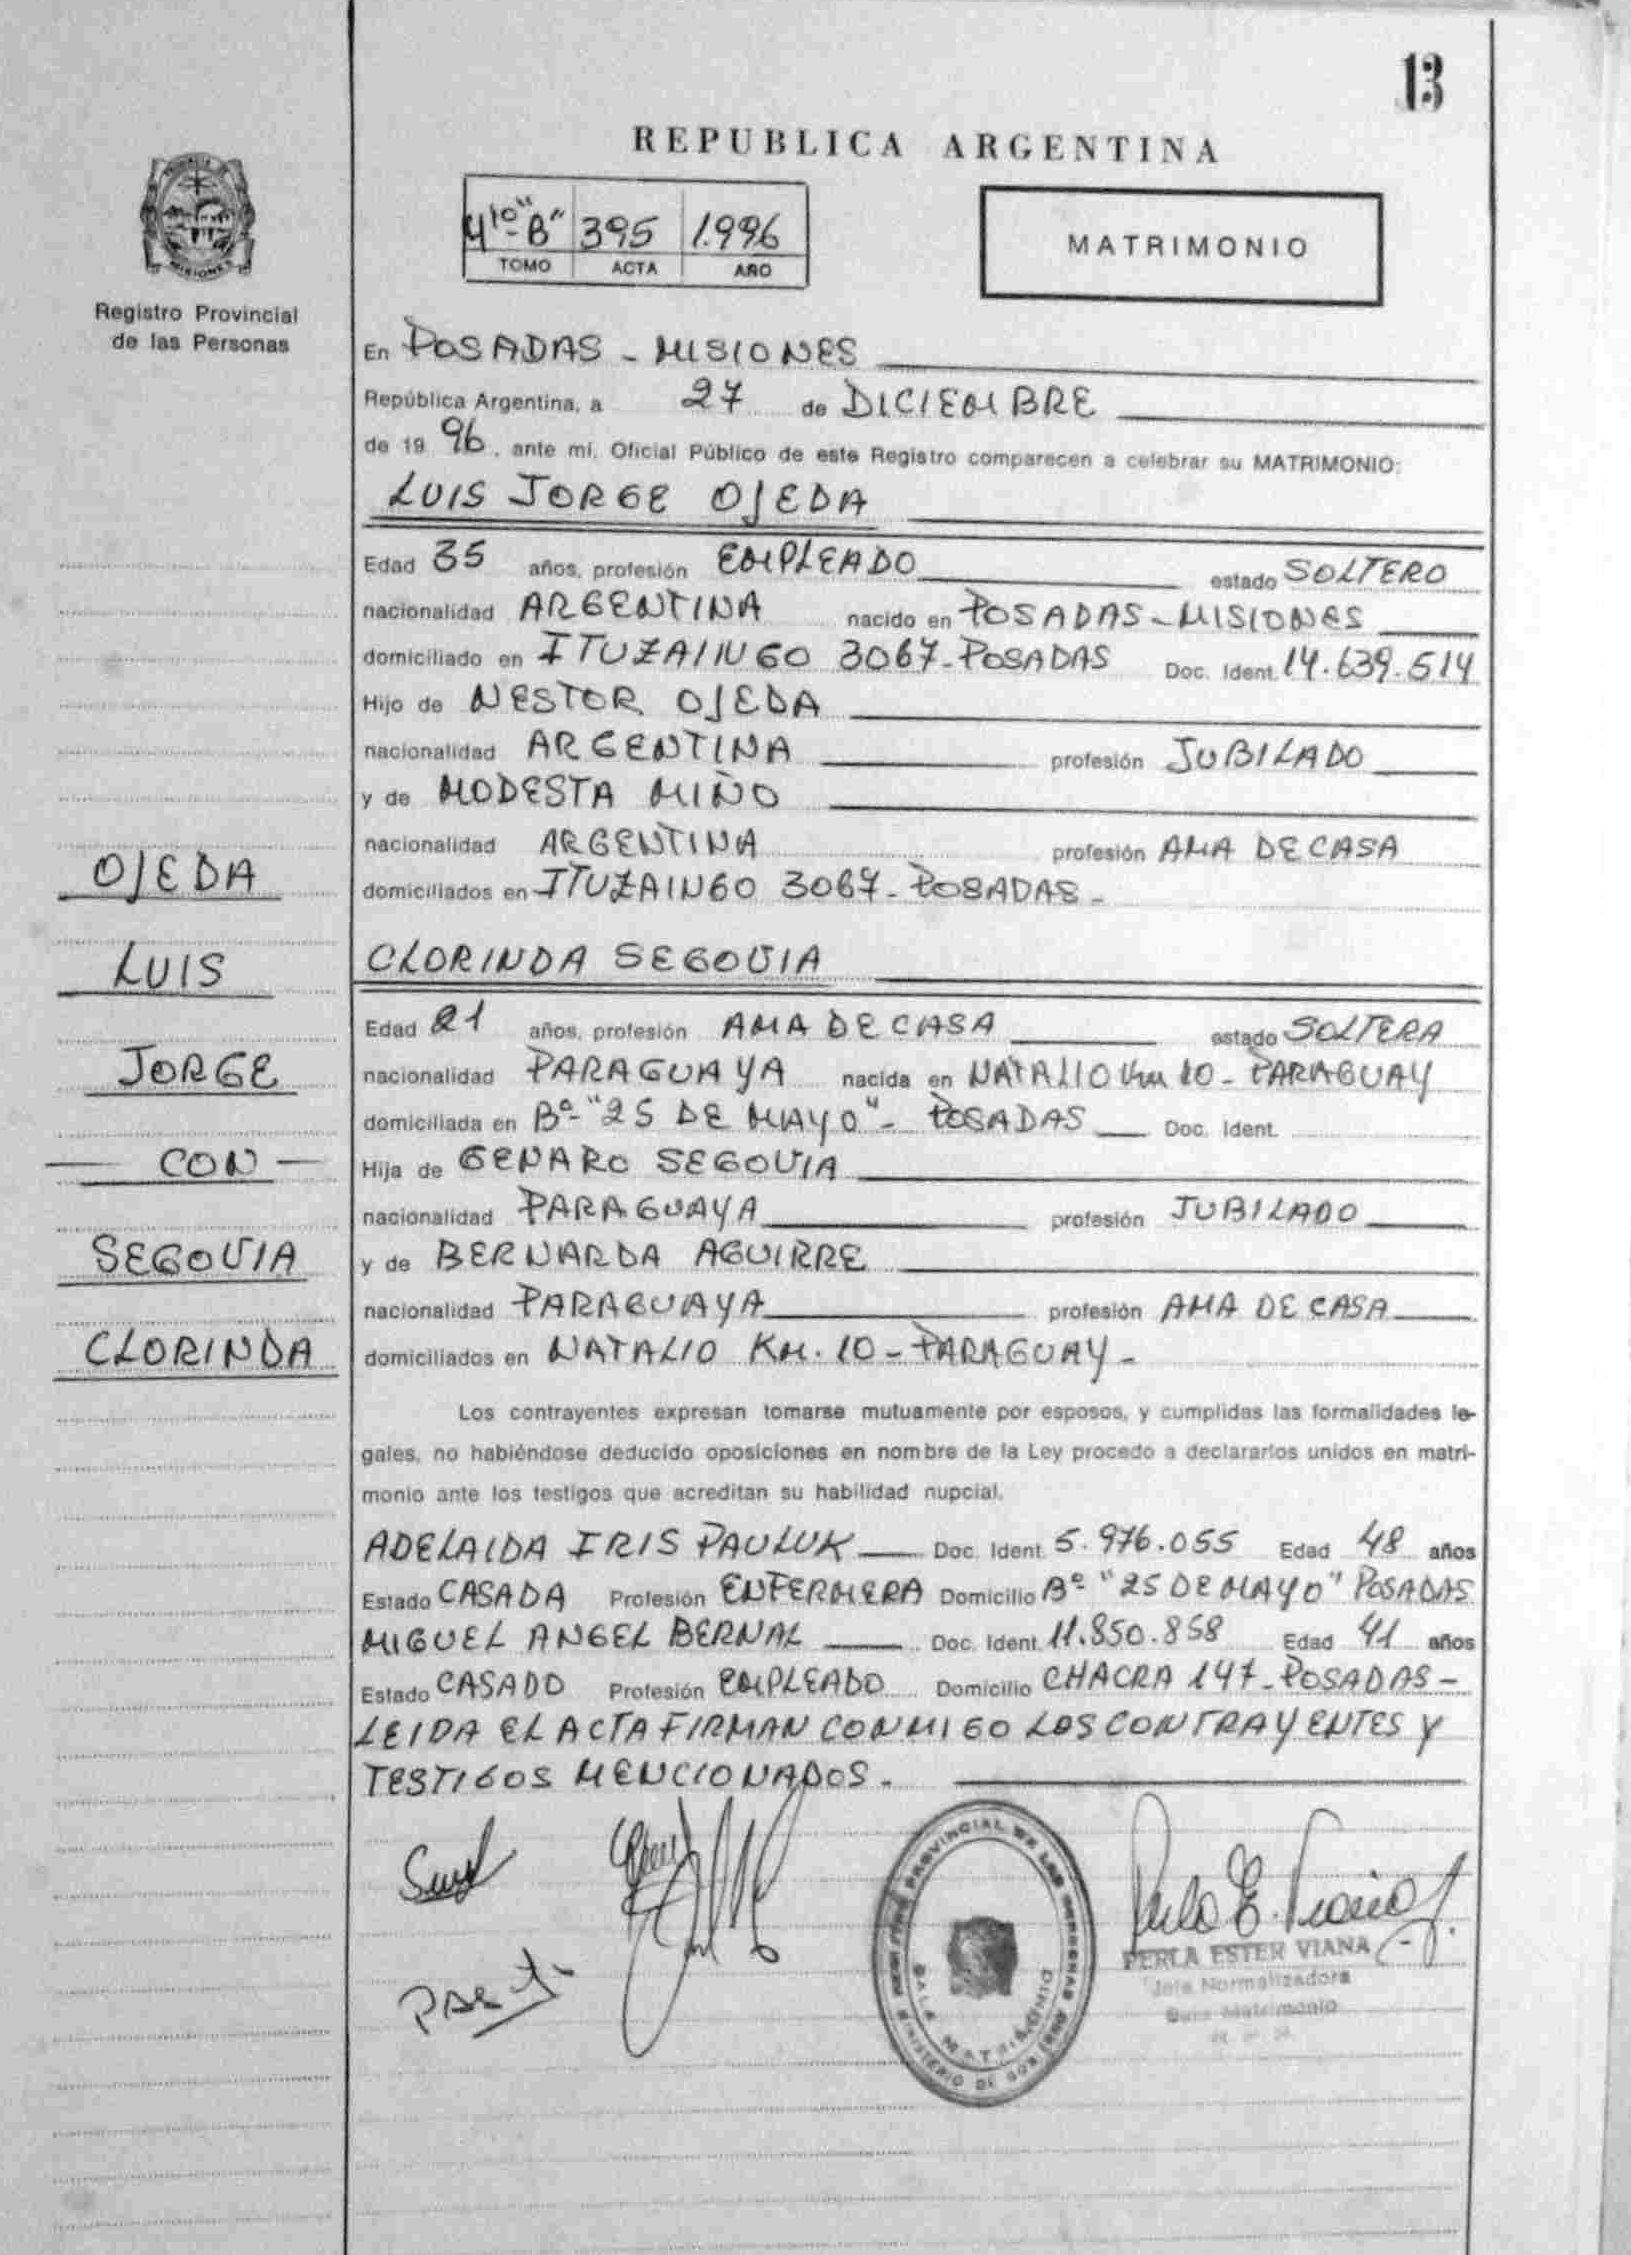 13
REPUBLICA ARGENTINA
4to "B" 395 1.996
TOMO ACTA AÑO
MATRIMONIO
MISIONES
Registro Provincial
de las Personas
En POSADAS - MISIONES
República Argentina, a 27 de DICIEMBRE
de 19 96, ante mí, Oficial Público de este Registro comparecen a celebrar su MATRIMONIO:
LUIS JORGE OJEDA
Edad 35 años, profesión EMPLEADO estado SOLTERO
nacionalidad ARGENTINA nacido en POSADAS - MISIONES
domiciliado en ITUZAINGO 3067 - POSADAS Doc. Ident. 14.639.514
Hijo de NESTOR OJEDA
nacionalidad ARGENTINA profesión JUBILADO
y de MODESTA MIÑO
nacionalidad ARGENTINA profesión AMA DE CASA
domiciliados en ITUZAINGO 3067 - POSADAS -
CLORINDA SEGOVIA
Edad 21 años, profesión AMA DE CASA estado SOLTERA
nacionalidad PARAGUAYA nacida en NATALIO Km 10 - PARAGUAY
domiciliada en Bº "25 DE MAYO" - POSADAS Doc. Ident.
Hija de GENARO SEGOVIA
nacionalidad PARAGUAYA profesión JUBILADO
y de BERNARDA AGUIRRE
nacionalidad PARAGUAYA profesión AMA DE CASA
domiciliados en NATALIO KM. 10 - PARAGUAY -
OJEDA
LUIS
JORGE
- CON -
SEGOVIA
CLORINDA
Los contrayentes expresan tomarse mutuamente por esposos, y cumplidas las formalidades le-
gales, no habiéndose deducido oposiciones en nombre de la Ley procedo a declararlos unidos en matri-
monio ante los testigos que acreditan su habilidad nupcial.
ADELAIDA IRIS PAULUK Doc. Ident. 5.976.055 Edad 48 años
Estado CASADA Profesión ENFERMERA Domicilio Bº "25 DE MAYO" POSADAS
MIGUEL ANGEL BERNAL Doc. Ident. 11.850.858 Edad 41 años
Estado CASADO Profesión EMPLEADO Domicilio CHACRA 147 - POSADAS -
LEIDA EL ACTA FIRMAN CONMIGO LOS CONTRAYENTES Y
TESTIGOS MENCIONADOS.
PROVINCIAL DE LAS PERSONAS
SALA MATRIMONIO
MINISTERIO DE GOBIERNO
PERLA ESTER VIANA
Jefa Normalizadora
Matrimonio